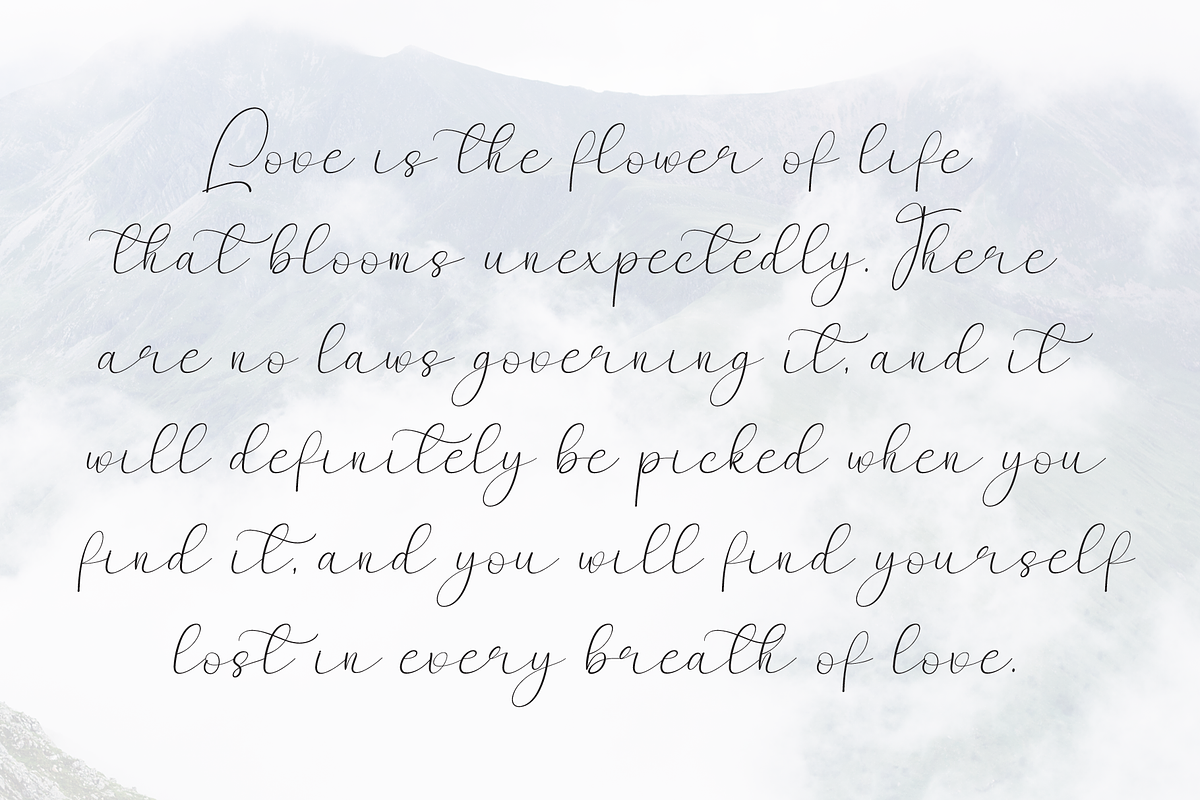 Love is the flower of life
that blooms unexpectedly. There
are no laws governing it, and it
will definitely be picked when you
find it, and you will find yourself
lost in every breath of love.